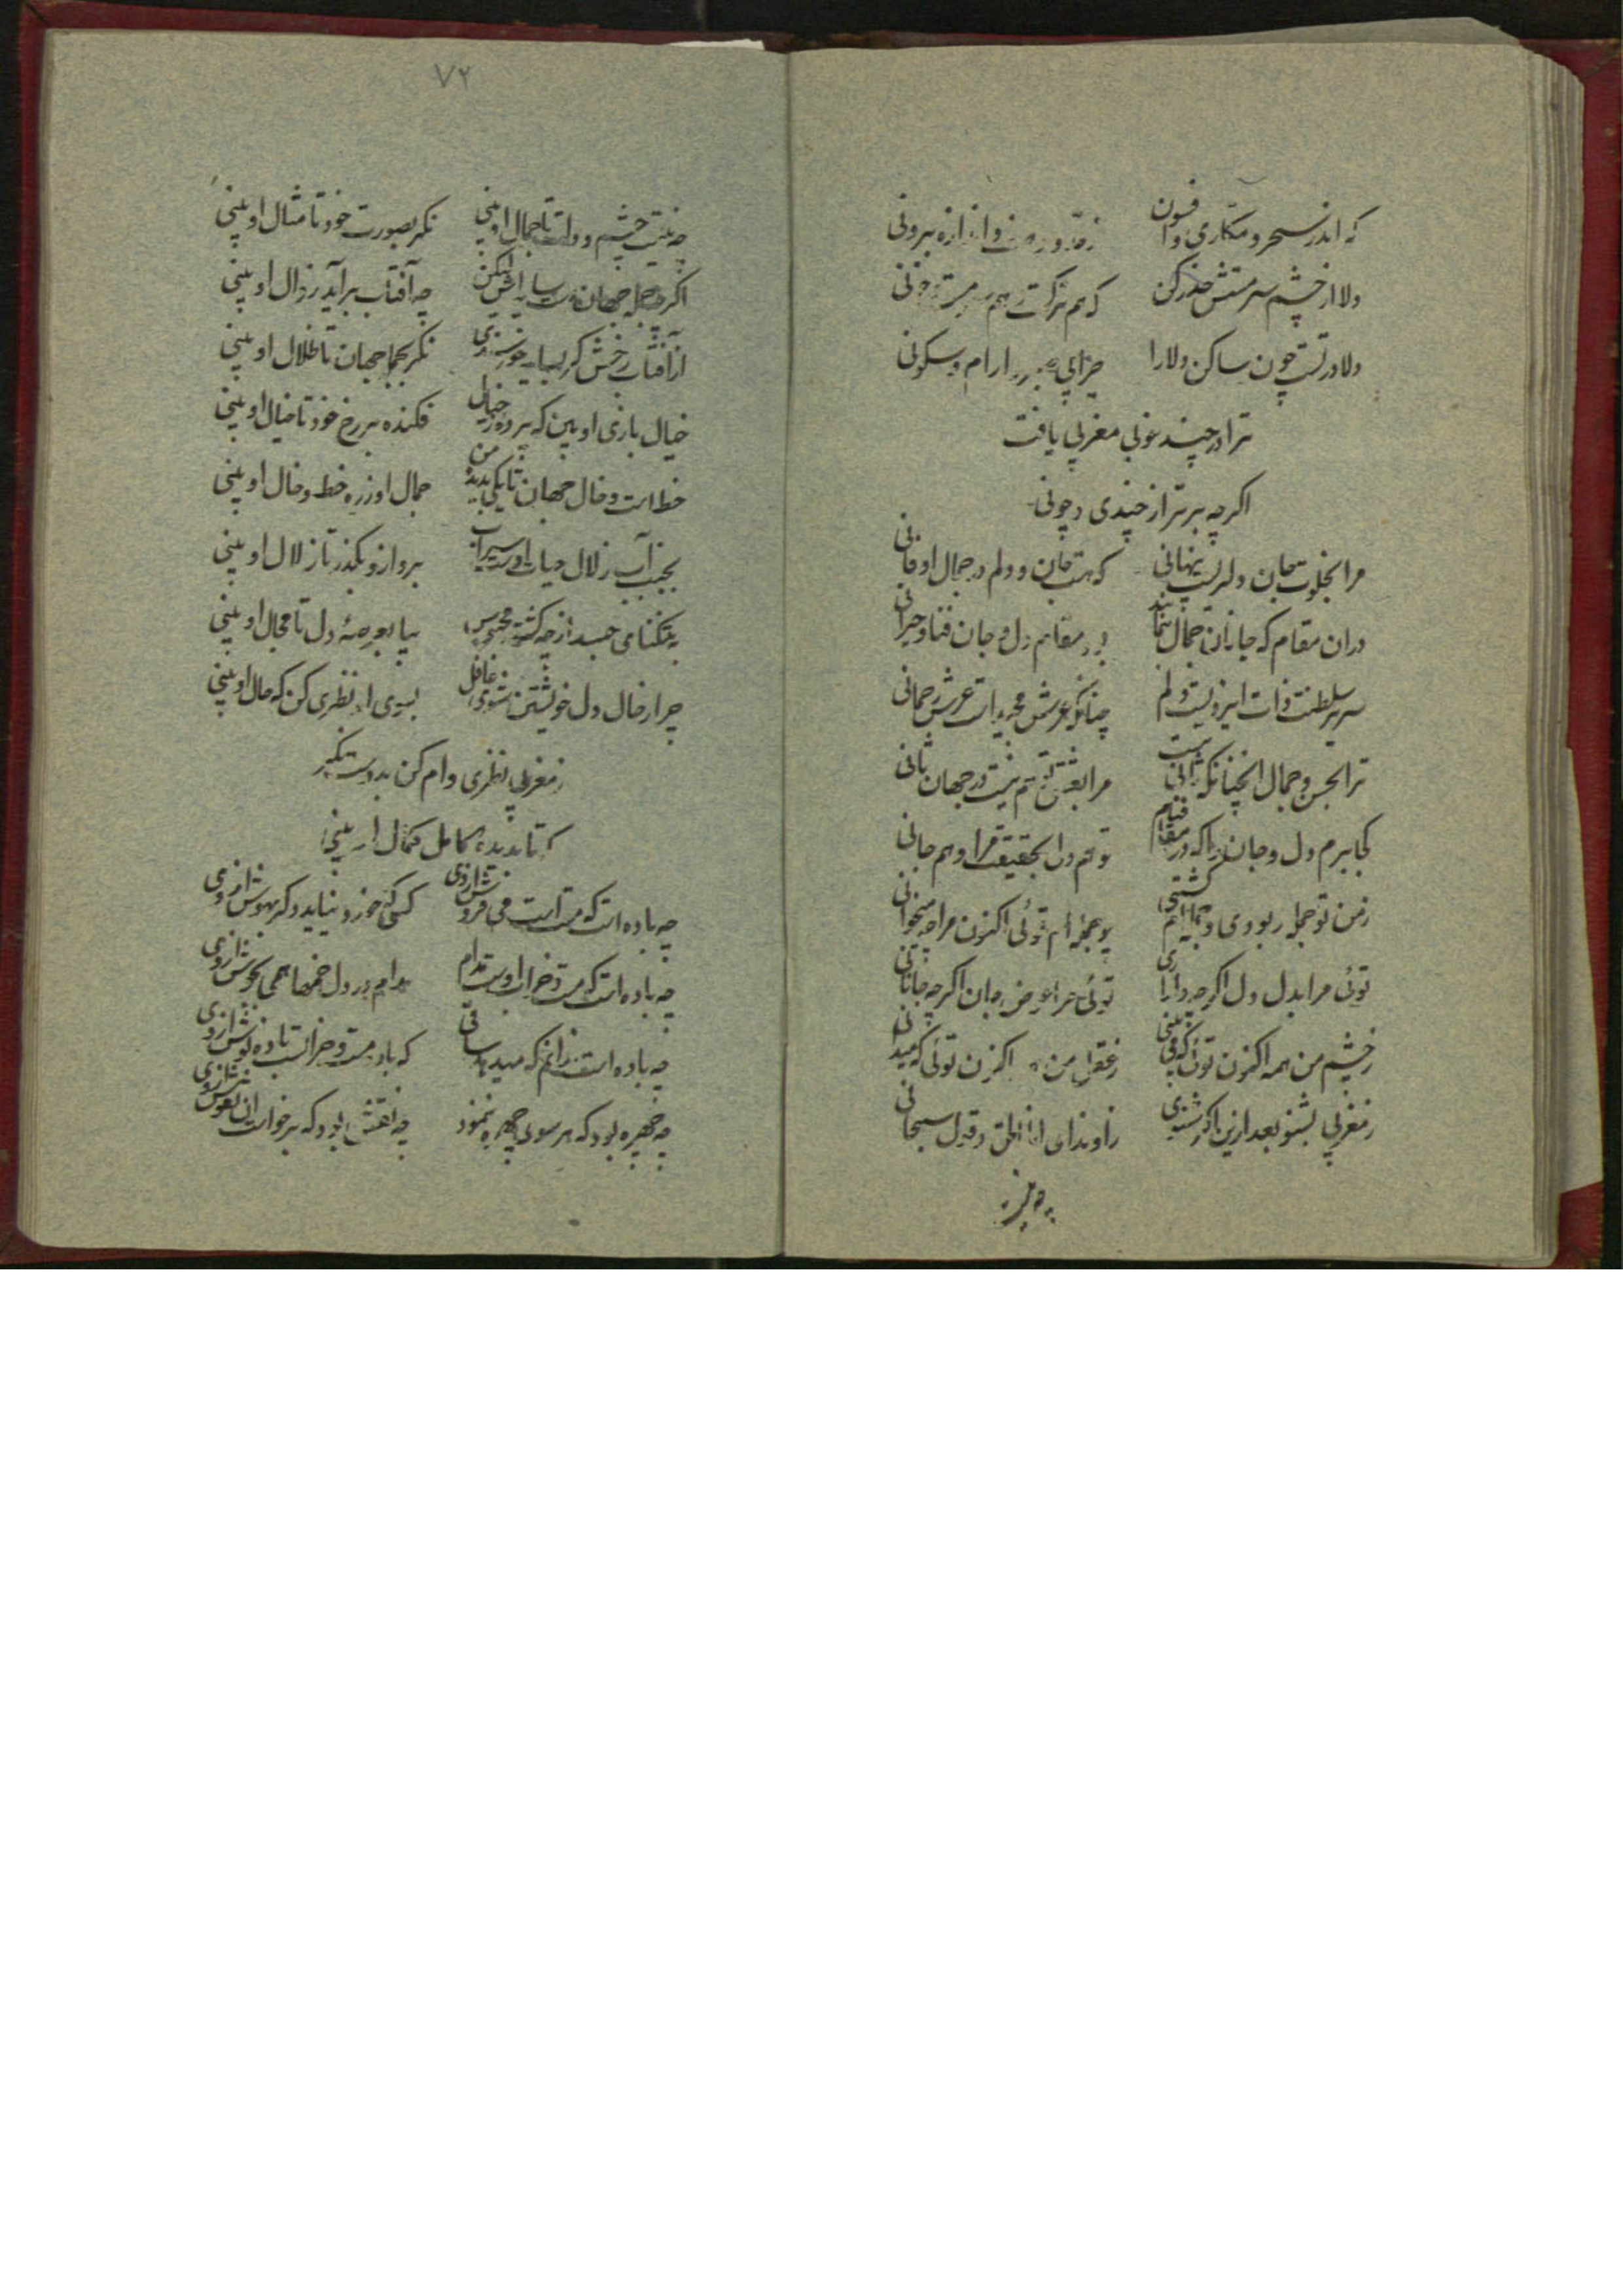 که اندر سحر و مکاری و افسون
ز حد و وانداره بیرونی
دلا از چشم سرمستش حذر کن
که هم ترکست هم مست خونی
دلا در تست چون ساکن دلارا
چرا بی صبر و ارام و سکونی
ترا در چند و چونی مغربی یافت
اکرچه برتر از چندی و چونی
مرا بخلوت جان دلبریست پنهانی
که هست جان و دلم در جمال او فانی
دران مقام که جانان جمال بنماید
بود مقام دل و جان فنا و حیرانی
سریر سلطنت ذات ایزدیست دلم
چنانکه عرش مجید است عرش رحمانی
ترا بحسن و جمال انچنانکه ثانی نیست
مرا بعشق تو هم نیست در جهان ثانی
کجا برم دل و جان را که در مقام فنا
تو هم دل بحقیقت مرا و هم جانی
ز من تو جمله ربودی و جمله‌ام کشتی
چو جمله‌ام توئی اکنون مرا چه میخوانی
توئی مرا بدل دل اکرچه دلداری
توئی مرا عوض جان اکرچه جانانی
ز چشم من همه اکنون توئی که می‌بینی
ز عقل من همه اکنون توئی که میدانی
ز مغربی بشنو بعد ازین اکر شنوی
ز او ندای انا الحق و قول سبحانی
چه نیست
۷۲
چه نیست چشم و دلت تا جمال او بینی
نکر بصورت خود تا مثال او بینی
اکرچه جمله جهان هست سایه‌اش لیکن
چه آفتاب برآید زوال او بینی
از آفتاب رخش کر بسایه خورسندی
نکر بجمله جهان تا ظلال او بینی
خیال بازی او بین که پرده خیال
فکنده بر رخ خود تا خیال او بینی
خط است و خال جهان تا یکی بدیده من
جمال او ز ره خط و خال او بینی
بجنب آب زلال حیات او سرابست
برو ازو بکذر تا زلال او بینی
بتنکنای جسد از چه کشته محبوس
بیا بعرصهٔ دل تا مجال او بینی
چرا ز حال دل خویشتن شوی غافل
بسوی او نظری کن که حال او بینی
ز مغربی نظری وام کن بدوست نکر
که تا بدیده کامل کمال او بینی
چه باده است که مست است می فروش از وی
کسی که خورد نیاید دکر بهوش از وی
چه باده است که مست و خراب اوست مدام
مدام در دل خمها همی بجوش از وی
چه باده است ندانم که میدهد ساقی
که باده مست و خرابست باده نوش از وی
چه چهره بود که هر سوی چهره بنمود
چه نقش بود که برخواست این نقوش از وی